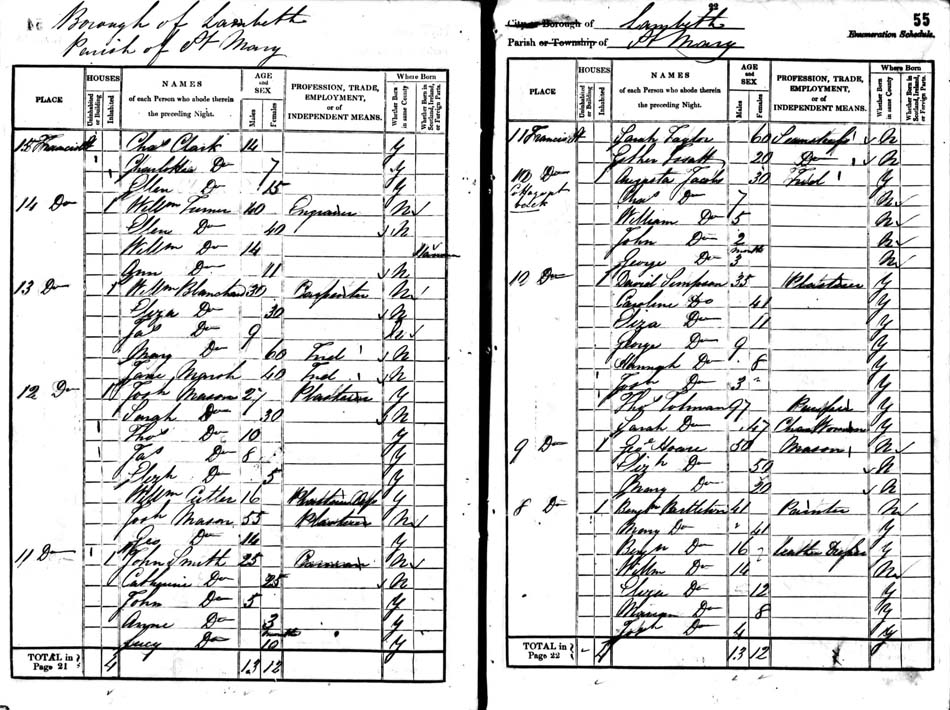 Borough of Lambeth
Parish of St Mary
PLACE
HOUSES
Uninhabited or Building
Inhabited
NAMES
of each Person who abode therein the preceding Night.
AGE and SEX
Males
Females
PROFESSION, TRADE, EMPLOYMENT, or of INDEPENDENT MEANS.
Where Born
Whether Born in same County
Whether Born in Scotland, Ireland, or Foreign Parts.
15 Francis St Chas Clark 14 Y
Charlotte Do 7 Y
Ellen Do 15 Y
14 Do 1 Willm Turner 40 Engraver N
Ellen Do 40 N
Willm Do 14
Ann Do 11 N
13 Do 1 Willm Blanchard 30 Carpenter N
Eliza Do 30 N
Jas Do 9 N
Mary Do 60 Ind N
Jane Marsh 40 Ind N
12 Do 1 Josh Mason 27 Plasterer Y
Sarah Do 30 N
Thos Do 10 Y
Jas Do 8 Y
Elizh Do 5 Y
Willm Cutler 16 Plasterer App Y
Josh Mason 55 Plasterer N
Geo Do 14 Y
11 Do 1 John Smith 25 Carman N
Catherine Do 25 N
John Do 5 Y
Anne Do 3 Y
Lucy Do 10 months Y
TOTAL in Page 21 4 13 12
55
City or Borough of Lambeth
Enumeration Schedule.
Parish or Township of St Mary
PLACE
HOUSES
Uninhabited or Building
Inhabited
NAMES
of each Person who abode therein the preceding Night.
AGE and SEX
Males
Females
PROFESSION, TRADE, EMPLOYMENT, or of INDEPENDENT MEANS.
Where Born
Whether Born in same County
Whether Born in Scotland, Ireland, or Foreign Parts.
11 Francis St Sarah Taylor 60 Seamstress N
Esther 20 Do N
10 Do 1 Augusta Jacobs 30 Ind Y
back Chas Do 7 N
William Do 5 N
John Do 2 N
George Do 3 months N
10 Do 1 David Simpson 35 Plasterer Y
Caroline Do 41 Y
Eliza Do 11 Y
George Do 9 Y
Hannah Do 8 Y
Josh Do 3 Y
Thos Tolman 97 Y
Sarah Do 47 Chas Woman Y
9 Do 1 Geo Hoare 50 Mason N
Elizh Do 50 N
Mary Do 20 N
8 Do 1 Benjn 41 Painter N
Mary Do 41 Y
Benjn Do 16 Leather Dresser Y
Willm Do 14 N
Eliza Do 12 Y
Do 8 Y
Josh Do 4 Y
TOTAL in Page 22 4 13 12